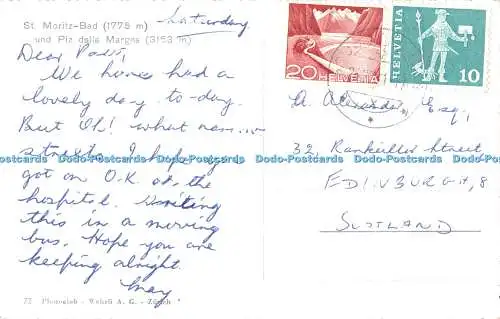 St. Moritz-Bad (1775 m)
und Piz della Margna (3153 m)
Saturday
Dear
We have had a
lovely day to-day.
But Oh! what narrow
streets. I hope you
got on O.K. at the
hospital. Writing
this in a moving
bus. Hope you are
keeping alright.
May
77 Phonoglob - Wehrli A. G. - Zürich
20 HELVETIA
HELVETIA 10
A. Alexander Esq.,
32, Rankeillor Street
EDINBURGH, 8
SCOTLAND
Dodo-Postcards Dodo-Postcards Dodo-Postcards Dodo-Postcards Dodo-Postcards